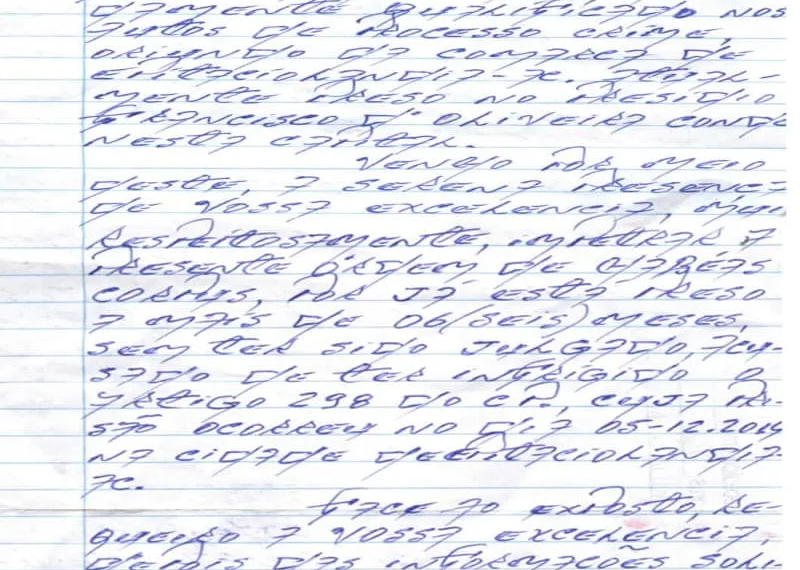 DAMENTE QUALIFICADO NOS
AUTOS DE PROCESSO CRIME,
ORIUNDO DA COMARCA DE
EPITACIOLANDIA-AC. ATUAL-
MENTE PRESO NO PRESIDIO
FRANCISCO D' OLIVEIRA CONDE
NESTA CAPITAL.
VENHO POR MEIO
DESTE, A SERENA PRESENÇA
DE VOSSA EXCELENCIA, MUI
RESPEITOSAMENTE, IMPETRAR A
PRESENTE ORDEM DE HABEAS
CORPUS, POR JÁ ESTA PRESO
A MAIS DE 06(SEIS) MESES,
SEM TER SIDO JULGADO, ACU-
SADO DE TER INFRIGIDO O
ARTIGO 298 DO CP., CUJA PRI-
SÃO OCORREU NO DIA 05-12.2014
NA CIDADE DE EPITACIOLANDIA-
AC.
FACE AO EXPOSTO, RE-
QUEIRO A VOSSA EXCELENCIA,
DEPOIS DAS INFORMAÇÕES SOLI-